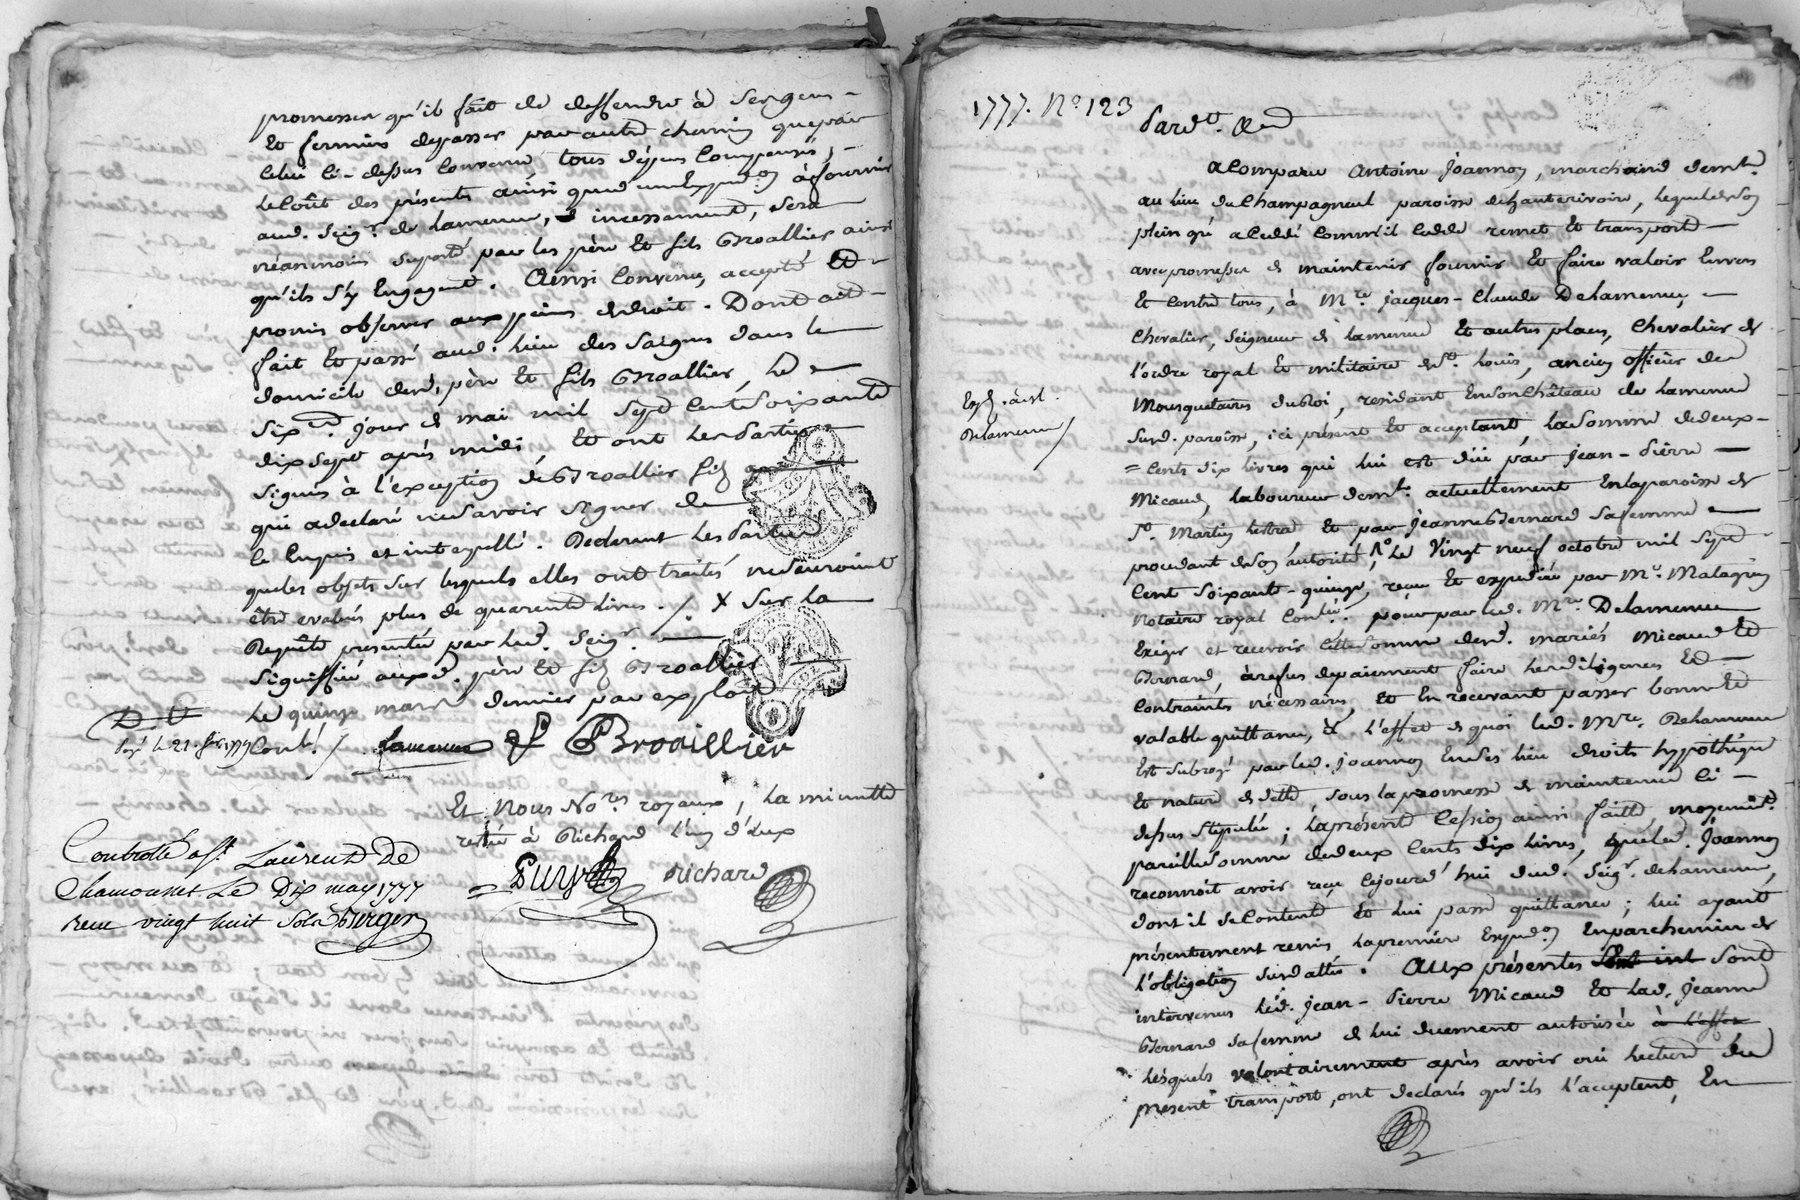 promesses qu'il fait de deffendre à Sergeus
et fermiers depasser par autre chemin que par
celui ci-dessus convenu tous dépens compensés,
Le coût des présents ainsi que d'un Expedon à fournir
aud. Seigr. de Lamenue, incessament, sera
néanmoins suporté par les père et fils Broallier ainsi
qu'ils s'y Engagent. Ainsi Convenu, accepté et
promis observer aux peines de droit. Dont acte
fait et passé aud. lieu des Saignes dans le
domicile desd. père et fils Broallier, Le
Sixe. jour de mai mil Sept Cent Soixante
dix Sept après midi, et ont Les Parties
Signés à l'exception de Broallier fils
qui a declaré ne Savoir Signer de
ce Enquis et interpellé. Declarant Les Parties
que les objets Sur lesquels elles ont traités ne Sauroient
être evalués plus de quarente Livres. /. X Sur la
Requête presentée par led. Seigr.
Signiffiée auxd. père et fils Broallier
Le quinze mars dernier par exploit
Cont. / Lamenue P Broaillier
Et Nous Nores royaux, La minutte
restée à Richard L'un d'Eux
Controllé a St. Laurent De
Chamousset Le Dix may 1777
reçu vingt huit Sols Berger
Puy Richard
1777. No. 123
Pardt. &ca
a Comparu Antoine Joannon, marchand demt.
au lieu du Champagneul paroisse de hauterivoire, lequel de Son
plein gré a Ceddé comm'il Cedde remet et transporte
avec promesse de maintenir fournir et faire valoir Envers
et Contre tous, à Mre. jacques-Claude Delamenue,
Chevalier, Seigneur de Lamenue et autres places, Chevalier de
l'ordre royal et militaire de St. Louis, ancien officier des
Mousquetaires du Roi, residant En Son Château de Lamenue
Susd. paroisse, ici présent et acceptant, La Somme de deux
= Cents dix Livres qui lui est düe par jean-Pierre
Micaud, Laboureur demt. actuellement En la paroisse de
St. Martin Lestra, et par jeanne Bernard Sa femme
procedant de Son autorité, Le Vingt neuf octobre mil Sept
Cent Soixante-quinze, reçu et expedié par Me. Malagrin
Notaire royal pour par led. Mre. Delamenue
Exiger et recevoir Cette Somme desd. mariés Micaud et
Bernard, à refus de paiement faire Les diligences et
Contraintes nécessaires, et En recevant passer bonne et
valable quittance, à l'effet de quoi led. Mre. Delamenue
Est Subrogé par led. Joannon En Ses lieu droits hyppothèque
et nature de dette, Sous la promesse de maintenue ci-
dessus Stipulée; La présente Cession ainsi faitte, moyennt.
pareille Somme de deux Cents dix Livres, que led. Joannon
reconnoit avoir reçu Cejourd'hui dud. Seigr. de Lamenue,
dont il Se Contente et lui passe quittance; lui ayant
présentement remis La première Expedon En parchemin de
L'obligation Susdattée. Aux présentes Sont
intervenus Led. jean-Pierre Micaud et Lad. jeanne
Bernard Sa femme de lui duement autorisée à l'effet
Lesquels volontairement après avoir oui lecture du
present transport, ont declarés qu'ils l'acceptent, En
Delamenue /